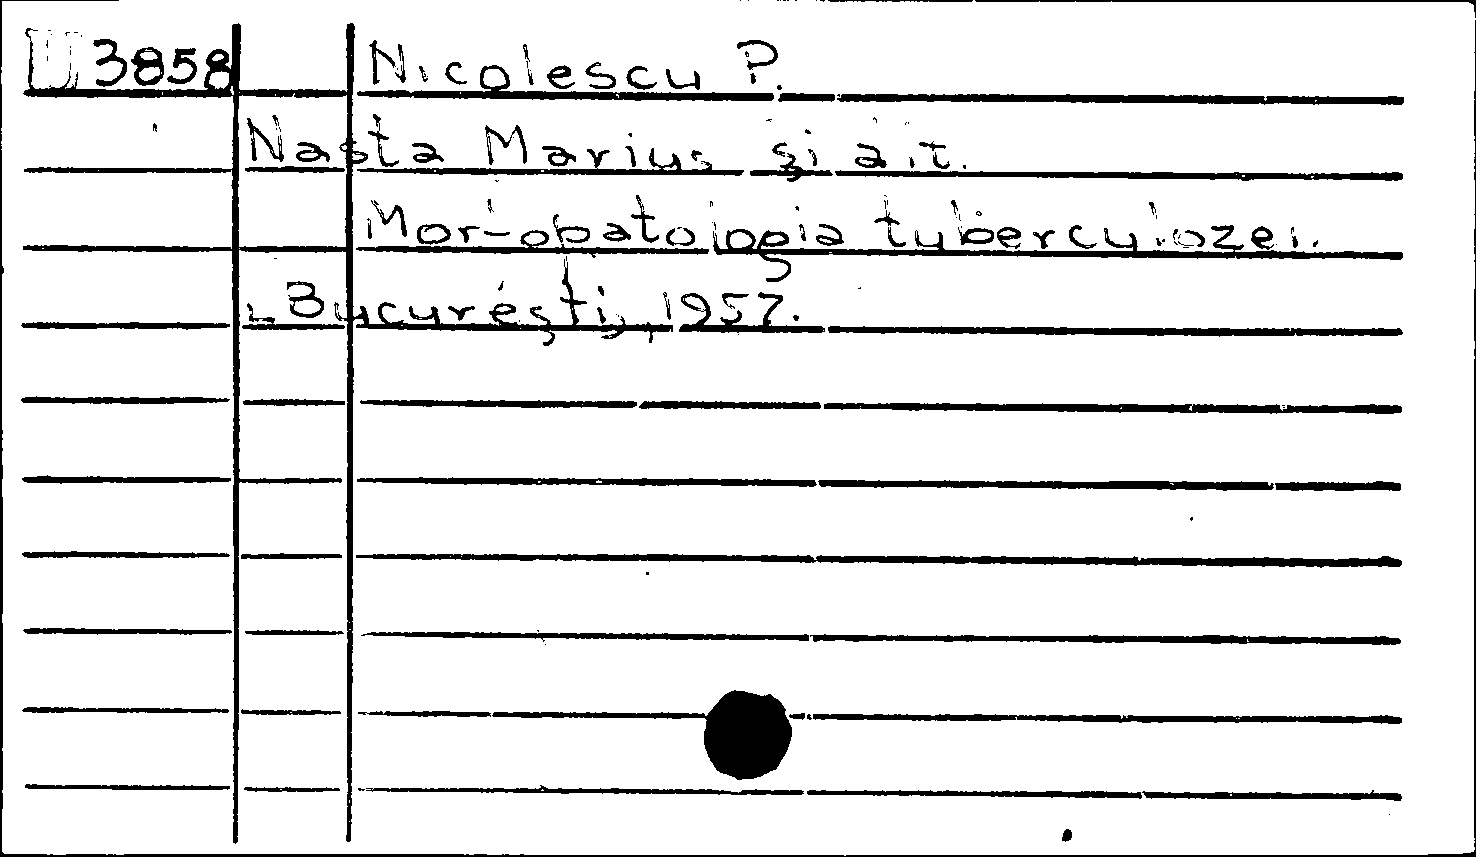 U 3858 Nicolescu P.
Nasta Marius și alt.
Morfopatologia tuberculozei.
București, 1957.